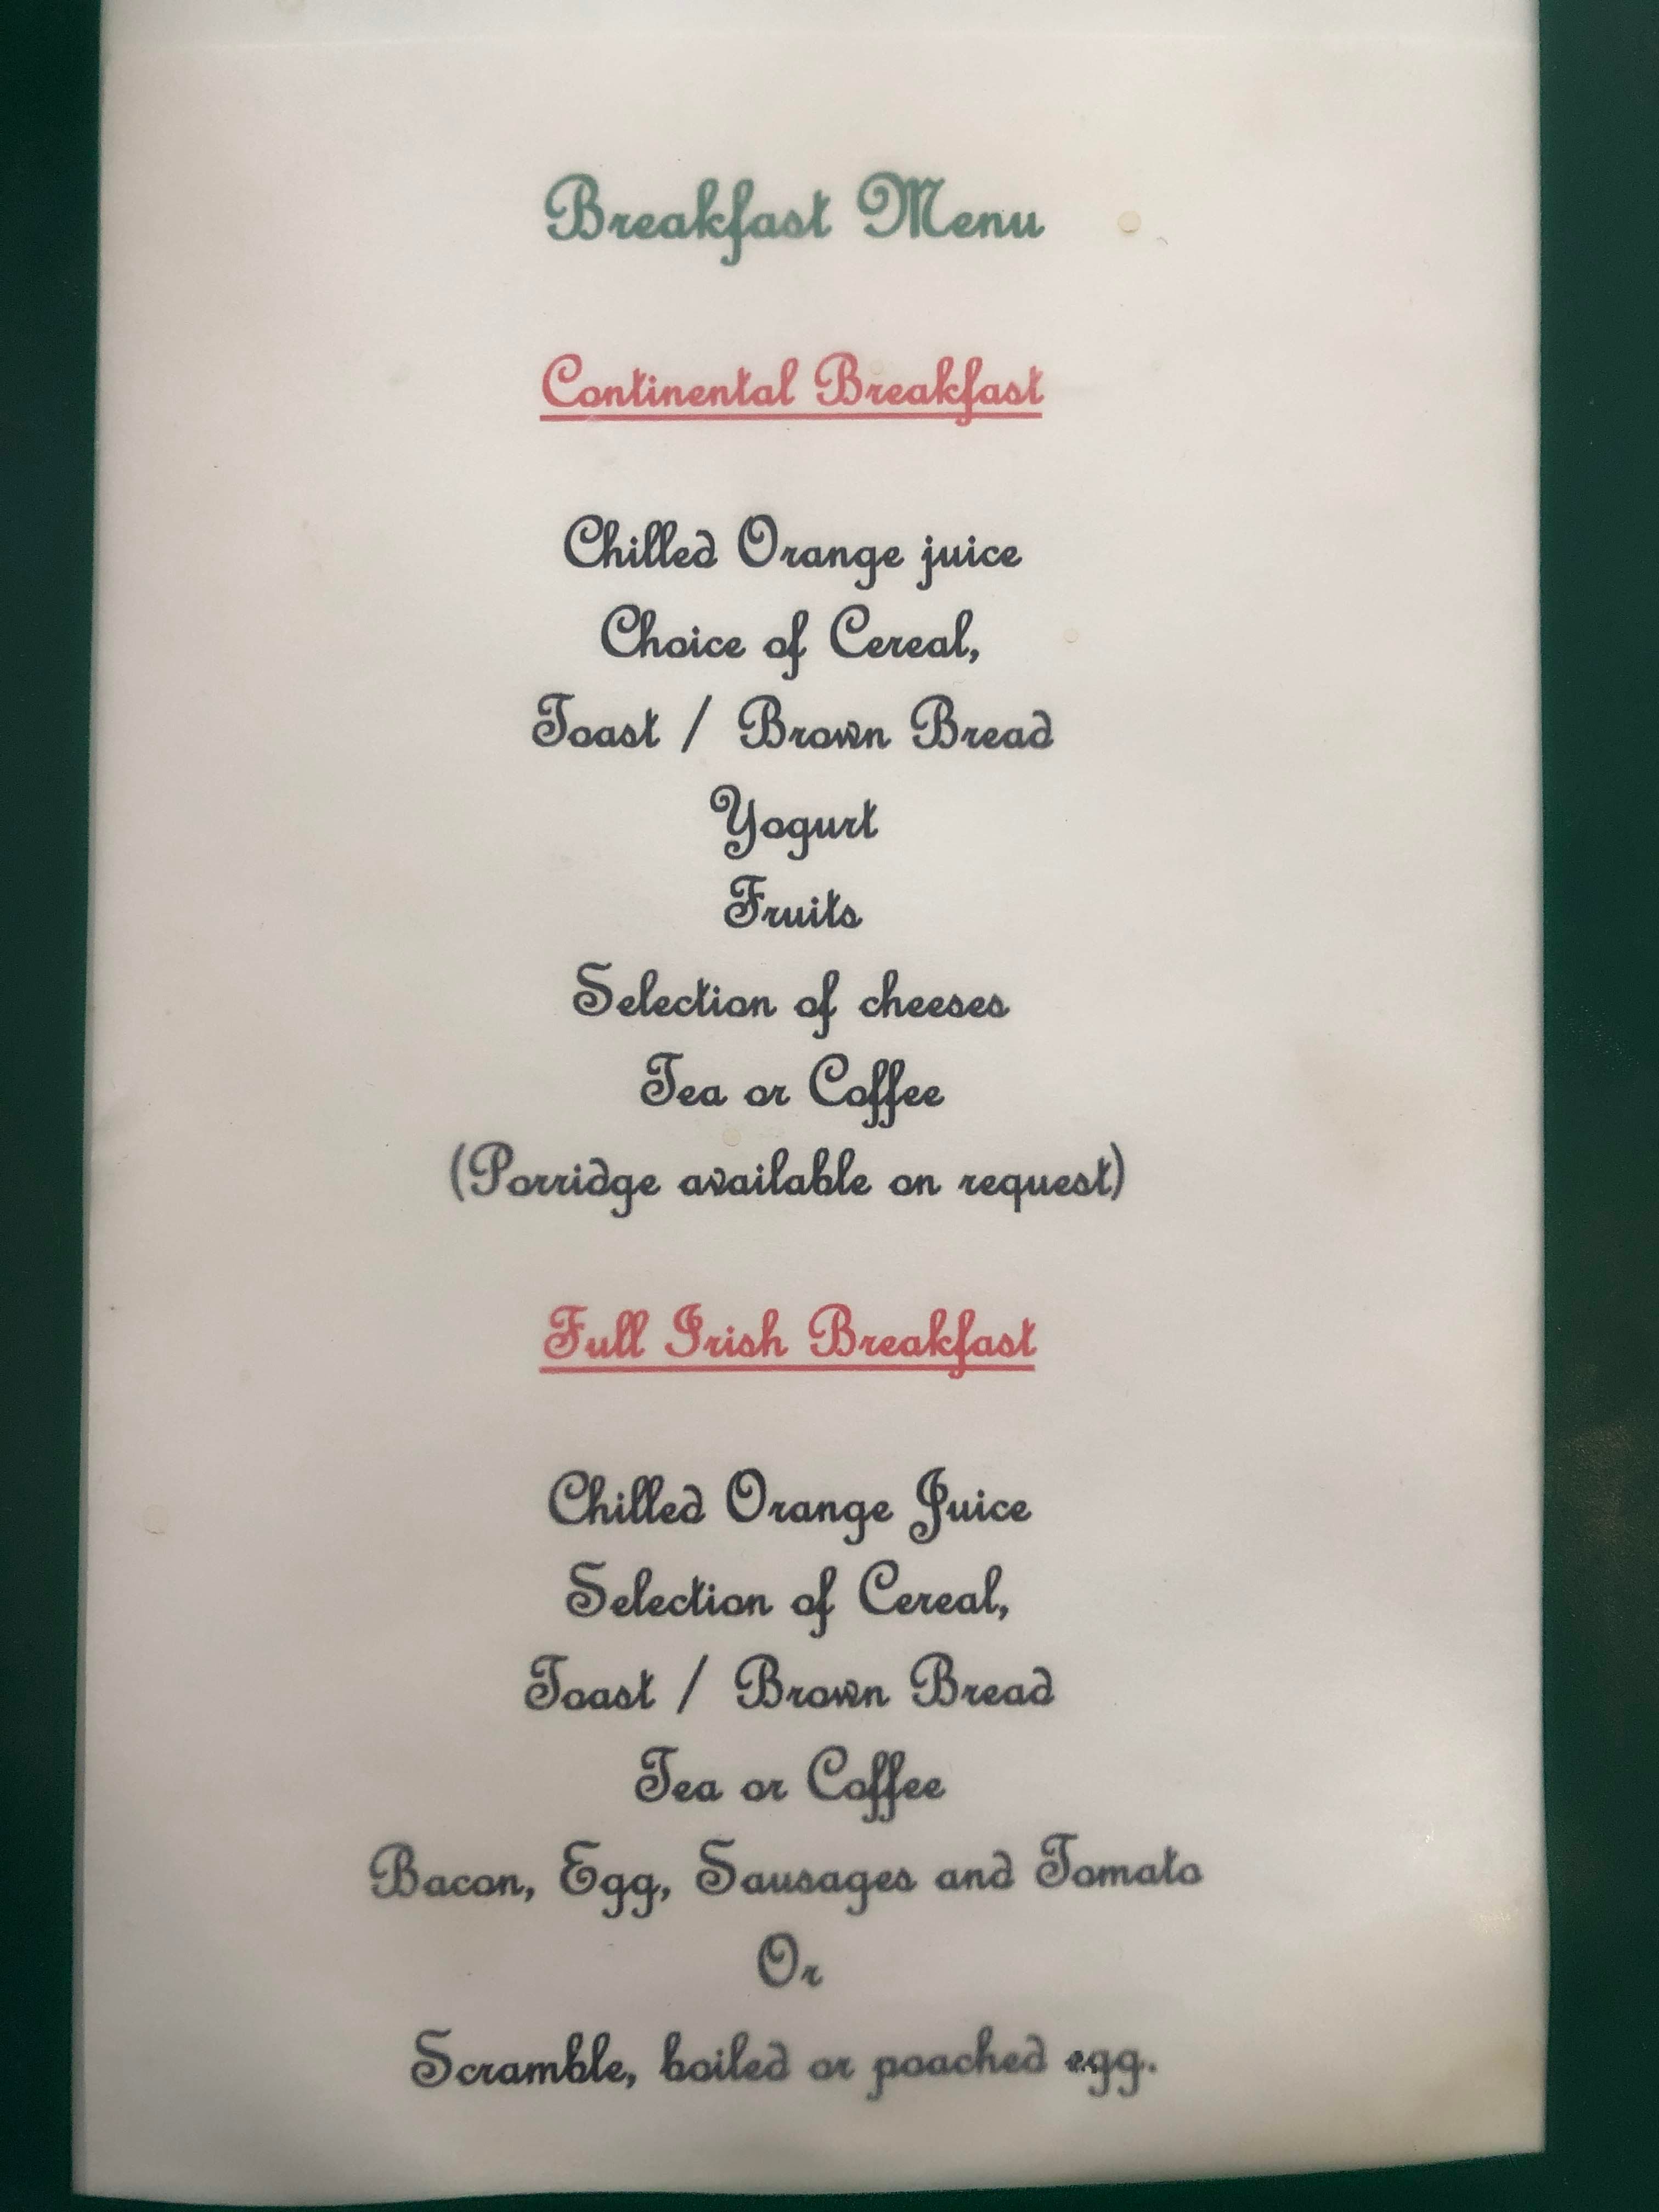 Breakfast Menu
Continental Breakfast
Chilled Orange juice
Choice of Cereal,
Toast / Brown Bread
Yogurt
Fruits
Selection of cheeses
Tea or Coffee
(Porridge available on request)
Full Irish Breakfast
Chilled Orange Juice
Selection of Cereal,
Toast / Brown Bread
Tea or Coffee
Bacon, Egg, Sausages and Tomato
Or
Scramble, boiled or poached egg.